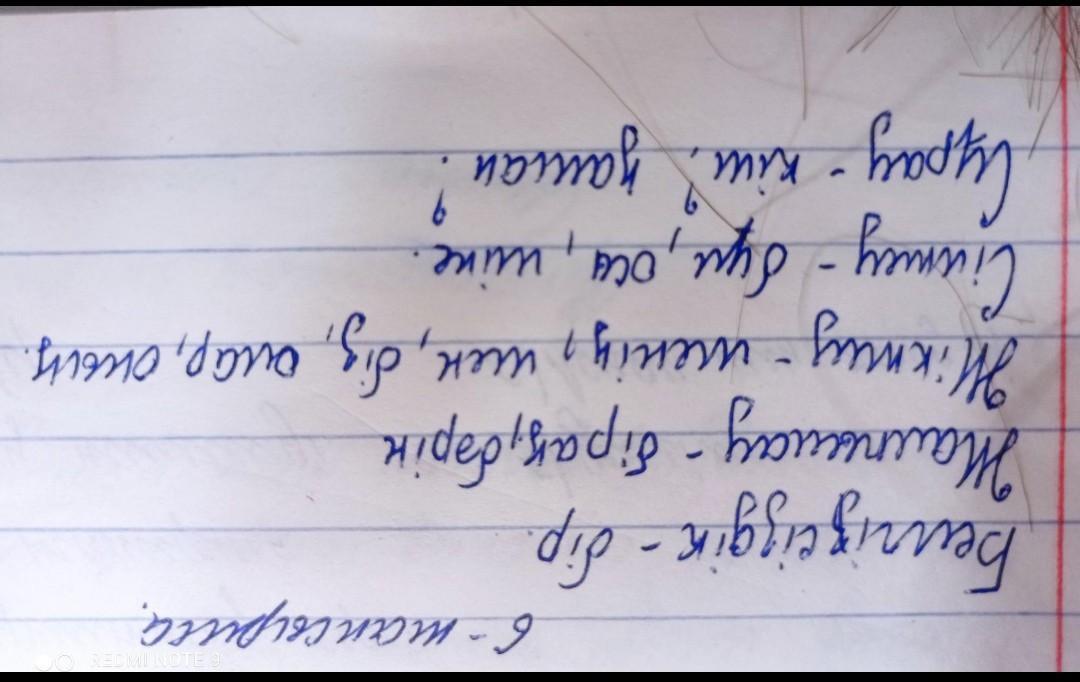 6-тапсырма.
Белгізсіздік - бір.
Жалпылау - бірақ, бәрін
Жіктеу - менің, мен, біз, олар, оның.
Сілтеу - бұл, осы, міне.
Сұрау - кім? қашан?
REDMI NOTE 9